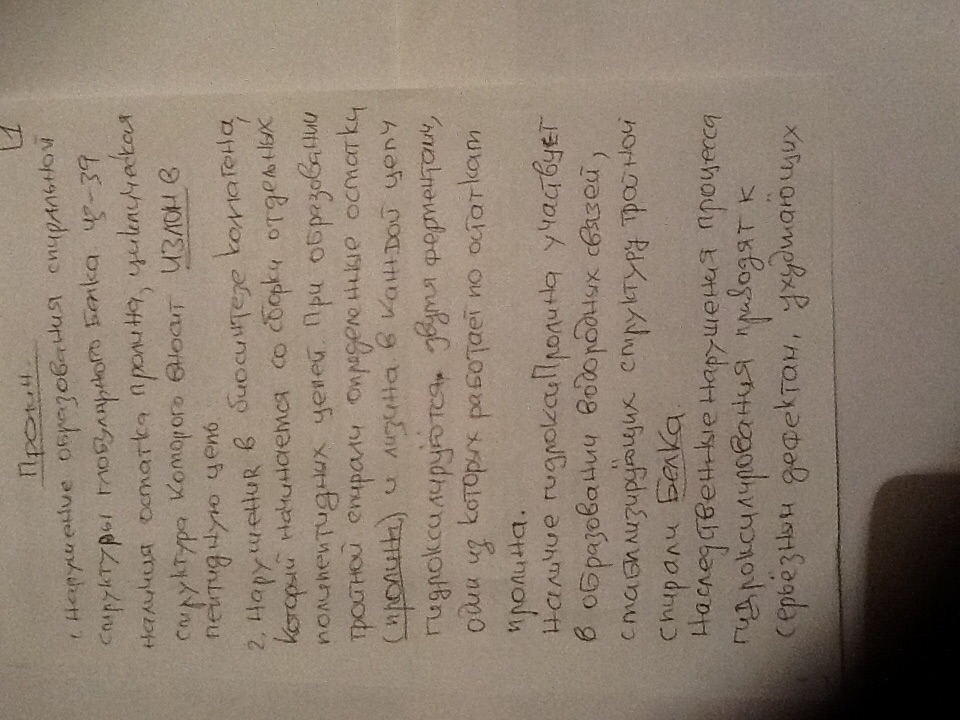 1
Пролин.
1. Нарушение образования спиральной
структуры глобулярного белка из-за
наличия остатка пролина, циклическая
структура которого вносит излом в
пептидную цепь
2. Нарушения в биосинтезе коллагена,
который начинается со сборки отдельных
полипептидных цепей. При образовании
тройной спирали определенные остатки
(пролина) и лизина в каждой цепи
гидроксилируются двумя ферментами,
один из которых работает по остаткам
пролина.
Наличие гидрокси Пролина участвует
в образовании водородных связей,
стабилизирующих структуру тройной
спирали Белка.
Наследственные нарушения процесса
гидроксилирования приводят к
серьёзным дефектам, ухудшающих